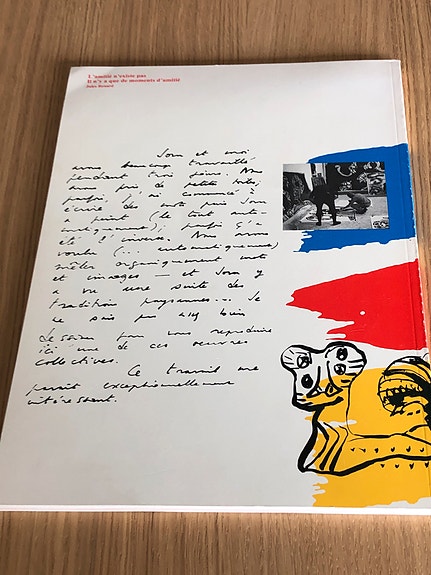 L'amitié n'existe pas
Il n'y a que de moments d'amitié
Jules Renard
Jorn et moi
avons beaucoup travaillé
pendant trois jours. Nous
avons pris de petites toiles,
parfois, j'ai commencé à
écrire des mots puis Jorn
a peint (le tout auto-
matiquement), parfois ç'a
été l'inverse. Nous avons
voulu (... automatiquement)
mêler organiquement mots
et images — et Jorn y
a vu une suite des
traditions paysannes... Je
ne sais pas
pour vous reproduire
ici une de ces oeuvres
collectives.
Ce travail me
paraît exceptionnellement
intéressant.